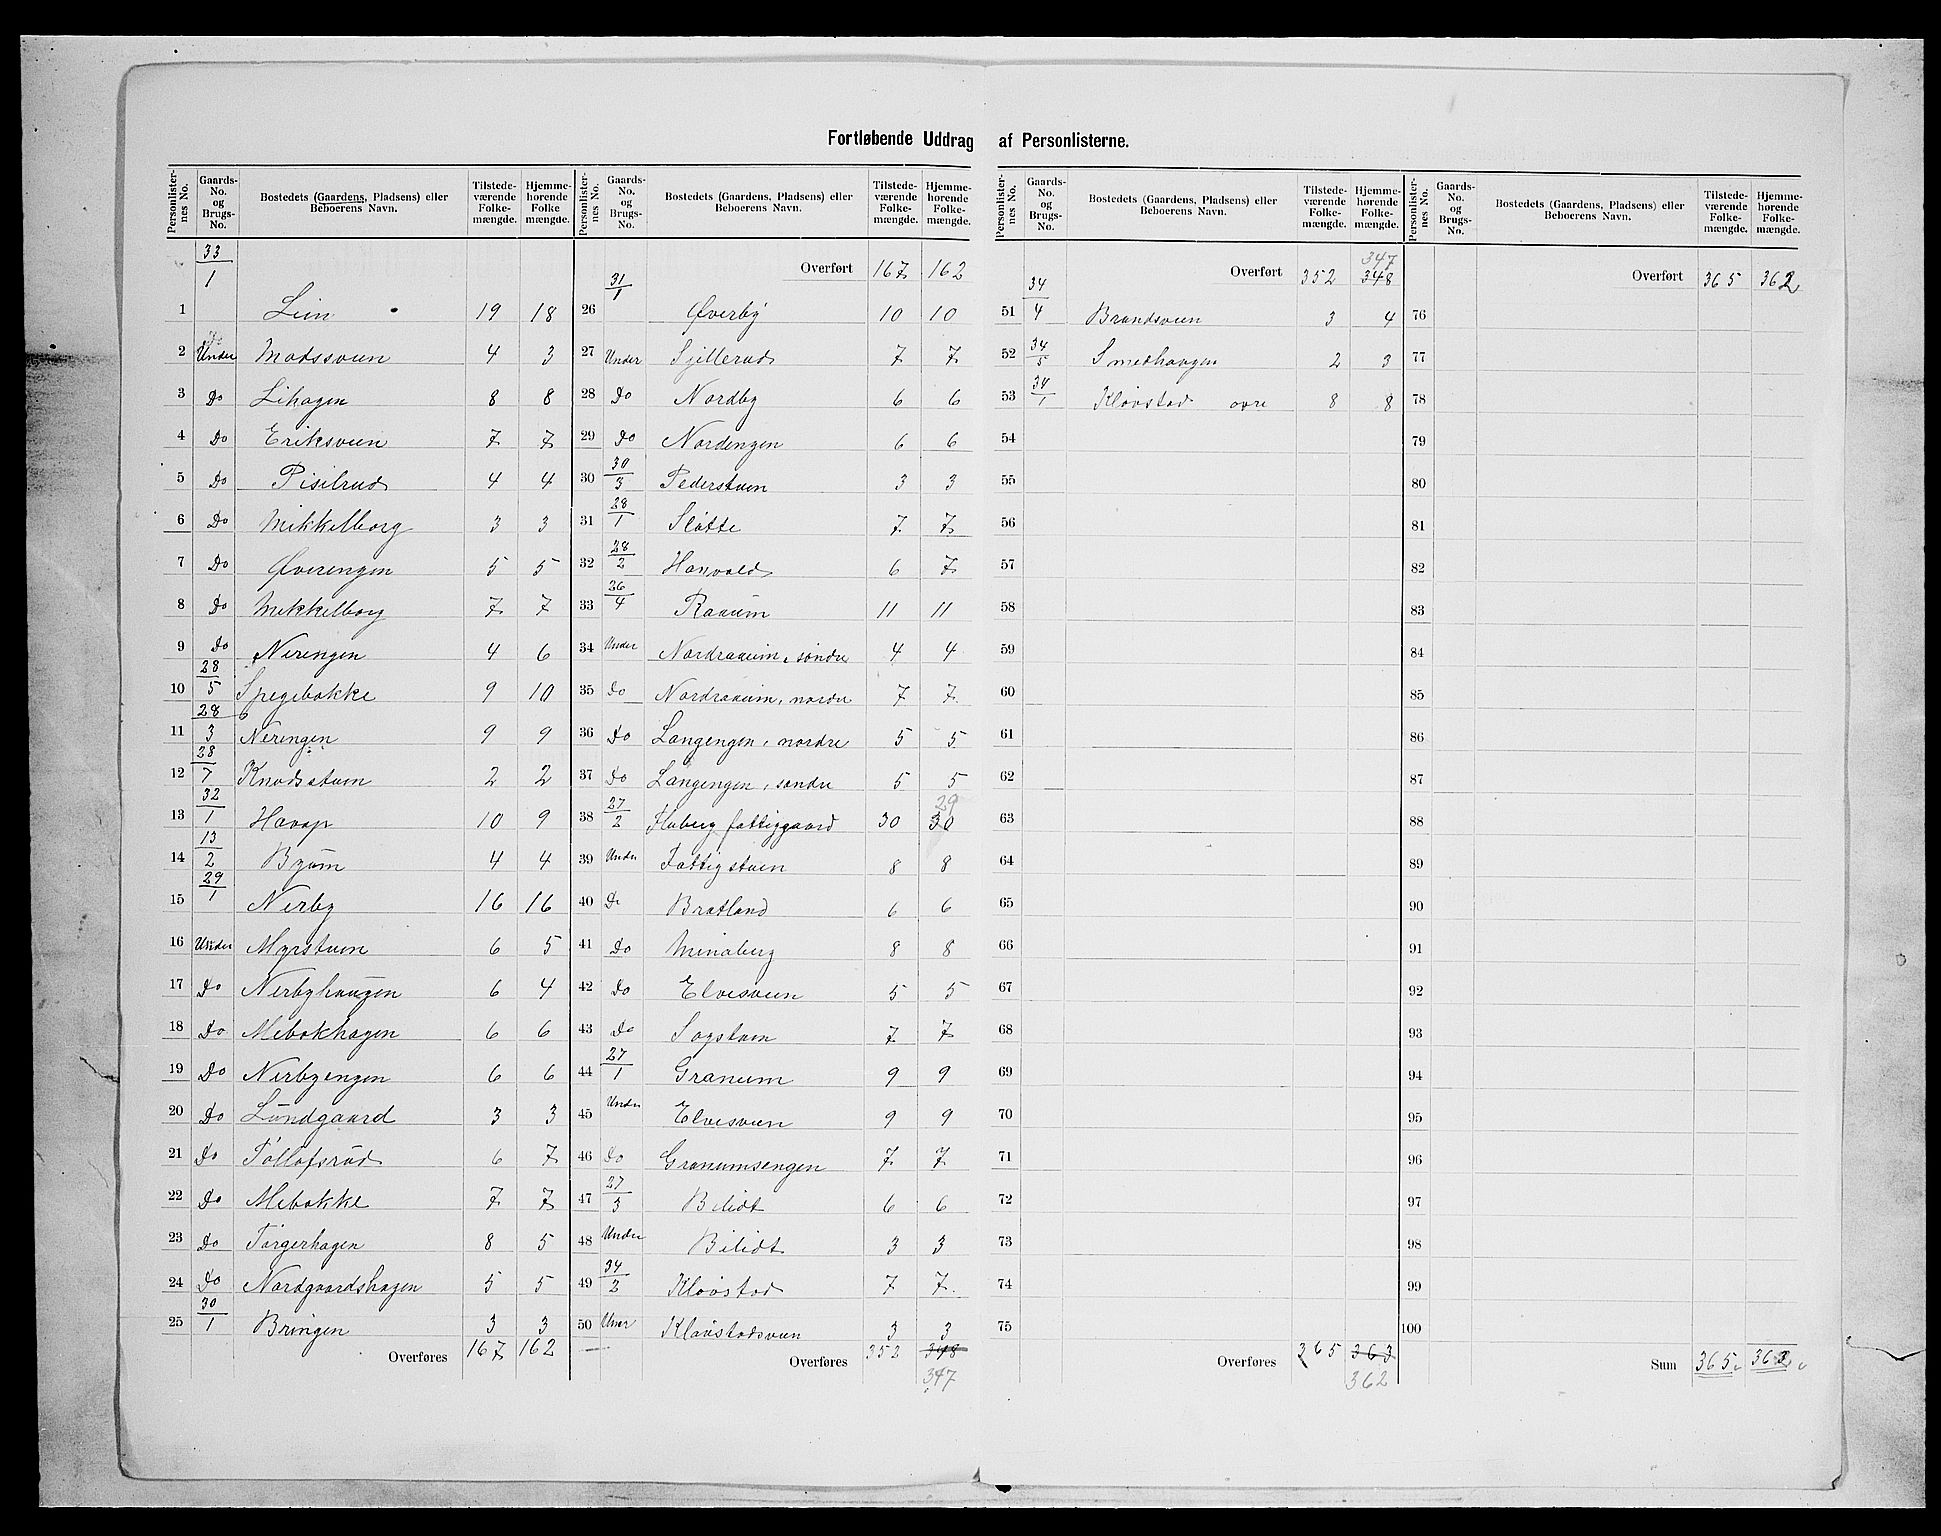 Fortløbende Uddrag af Personlisterne.
Personlister-nes No. | Gaards-No. og Brugs-No. | Bostedets (Gaardens, Pladsens) eller Beboerens Navn. | Tilstede-værende Folke-mængde. | Hjemme-hørende Folke mængde.
1 33/1 Lein 19 18
2 Under Madssveen 4 3
3 Do Lihagen 8 8
4 Do Eriksveen 7 7
5 Do Pisilrud 4 4
6 Do Mikkelborg 3 3
7 Do Øverengen 5 5
8 Do Mikkelborg 7 7
9 Do Nerengen 4 6
10 28/5 Spegebakke 9 10
11 28/3 Nerengen 9 9
12 28/7 Knudsstuen 2 2
13 32/1 Haarap 10 9
14 13/2 Byøm 4 4
15 29/1 Nerby 16 16
16 Under Myrstuen 6 5
17 Do Nerbyhaugen 6 4
18 Do Mebakhagen 6 6
19 Do Nerbyengen 6 6
20 Do Lundgaard 3 3
21 Do Tollofsrud 6 7
22 Do Mebakke 7 7
23 Do Torgerhagen 8 5
24 Do Nordgaardshagen 5 5
25 30/1 Bringen 3 3
Overføres 167 162
Personlister-nes No. | Gaards-No. og Brugs-No. | Bostedets (Gaardens, Pladsens) eller Beboerens Navn. | Tilstede-værende Folke-mængde. | Hjemme-hørende Folke-mængde.
Overført 167 162
26 31/1 Øverby 10 10
27 Under Sjillerud 7 7
28 Do Nordby 6 6
29 Do Nordengen 6 6
30 30/3 Pederstuen 3 3
31 28/1 Slåtte 7 7
32 28/2 Hanvold 6 7
33 26/4 Raaum 11 11
34 Under Nordraaum, søndre 4 4
35 Do Nordraaum, nordre 7 7
36 Do Langengen, nordre 5 5
37 Do Langengen, søndre 5 5
38 27/2 Fluberg fattiggaard 30 30 29
39 Under Fattigstuen 8 8
40 Do Bratland 6 6
41 Do Minaberg 8 8
42 Do Elvesveen 5 5
43 Do Sagstuen 7 7
44 27/1 Granum 9 9
45 Under Elvesveen 9 9
46 Do Granumsengen 7 7
47 27/3 Bilidt 6 6
48 Under Bilidt 3 3
49 34/2 Kløvstad 7 7
50 Uner Kløvstadsveen 3 3
Overføres 352 348
347
Personlister-nes No. | Gaards-No. og Brugs-No. | Bostedets (Gaardens, Pladsens) eller Beboerens Navn. | Tilstede-værende Folke-mængde. | Hjemme-hørende Folke-mængde.
347
Overført 352 348
51 34/4 Brandsveen 3 4
52 34/5 Smedhaugen 2 3
53 34/1 Kløvstad øvre 8 8
54
55
56
57
58
59
60
61
62
63
64
65
66
67
68
69
70
71
72
73
74
75
Overføres 365 363
362
Personlister-nes No. | Gaards-No. og Brugs-No. | Bostedets (Gaardens, Pladsens) eller Beboerens Navn. | Tilstede-værende Folke-mængde. | Hjemme-hørende Folke-mængde.
Overført 365 362
76
77
78
79
80
81
82
83
84
85
86
87
88
89
90
91
92
93
94
95
96
97
98
99
100
Sum 365 362